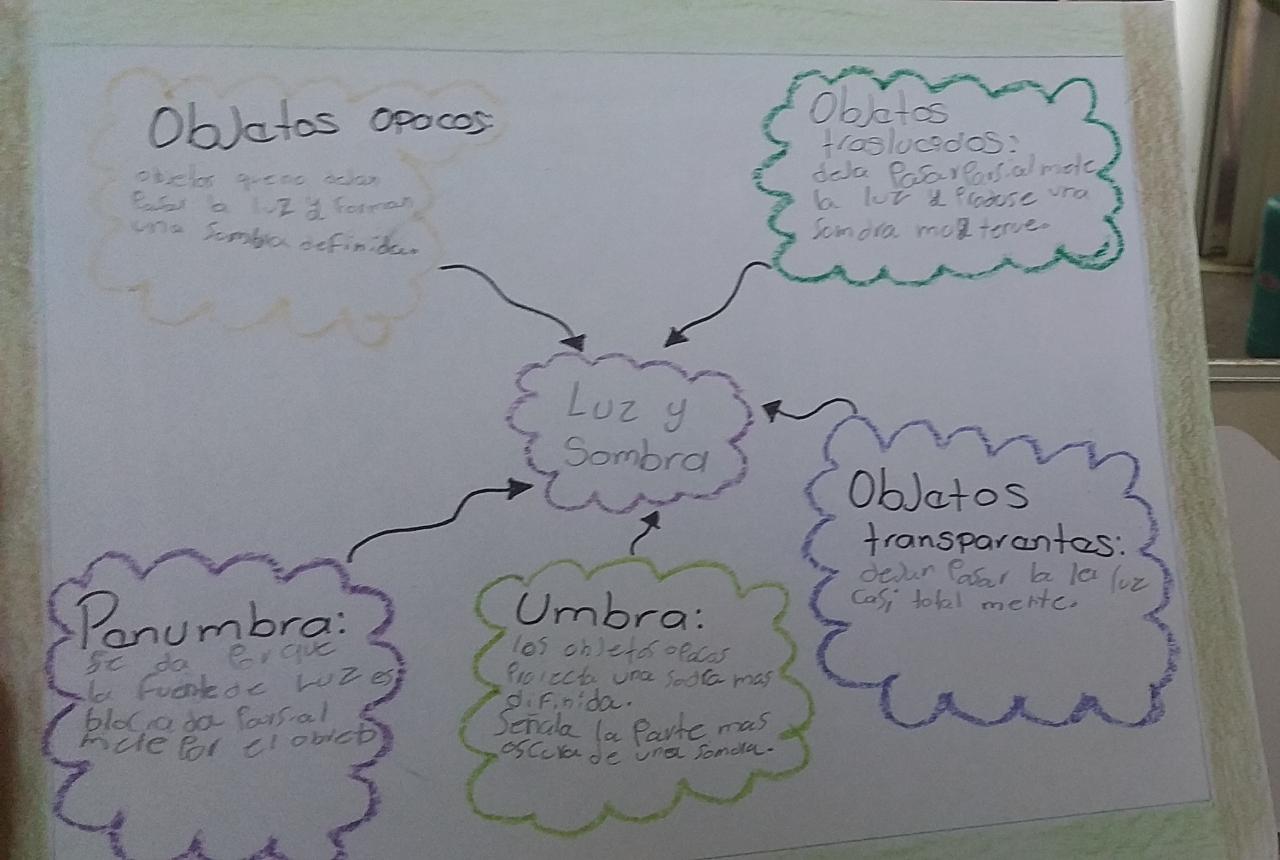 Objetos opacos
objetos que no dejan
Pasar la luz y forman
una Sombra definida.
Objetos
traslucedos:
deja Pasar Parsial mete
la luz y Produse una
Luz y
Sombra
Objetos
transparantes:
dejan Pasar la la luz
casi total mente.
Panumbra:
se da Porque
la fuente de Luz es
blociada Parsial
mete Por el objeto
Umbra:
los objetos opacos
Proiecta una sodra mas
difinida.
Señala la Parte mas
oscura de una Somdra.